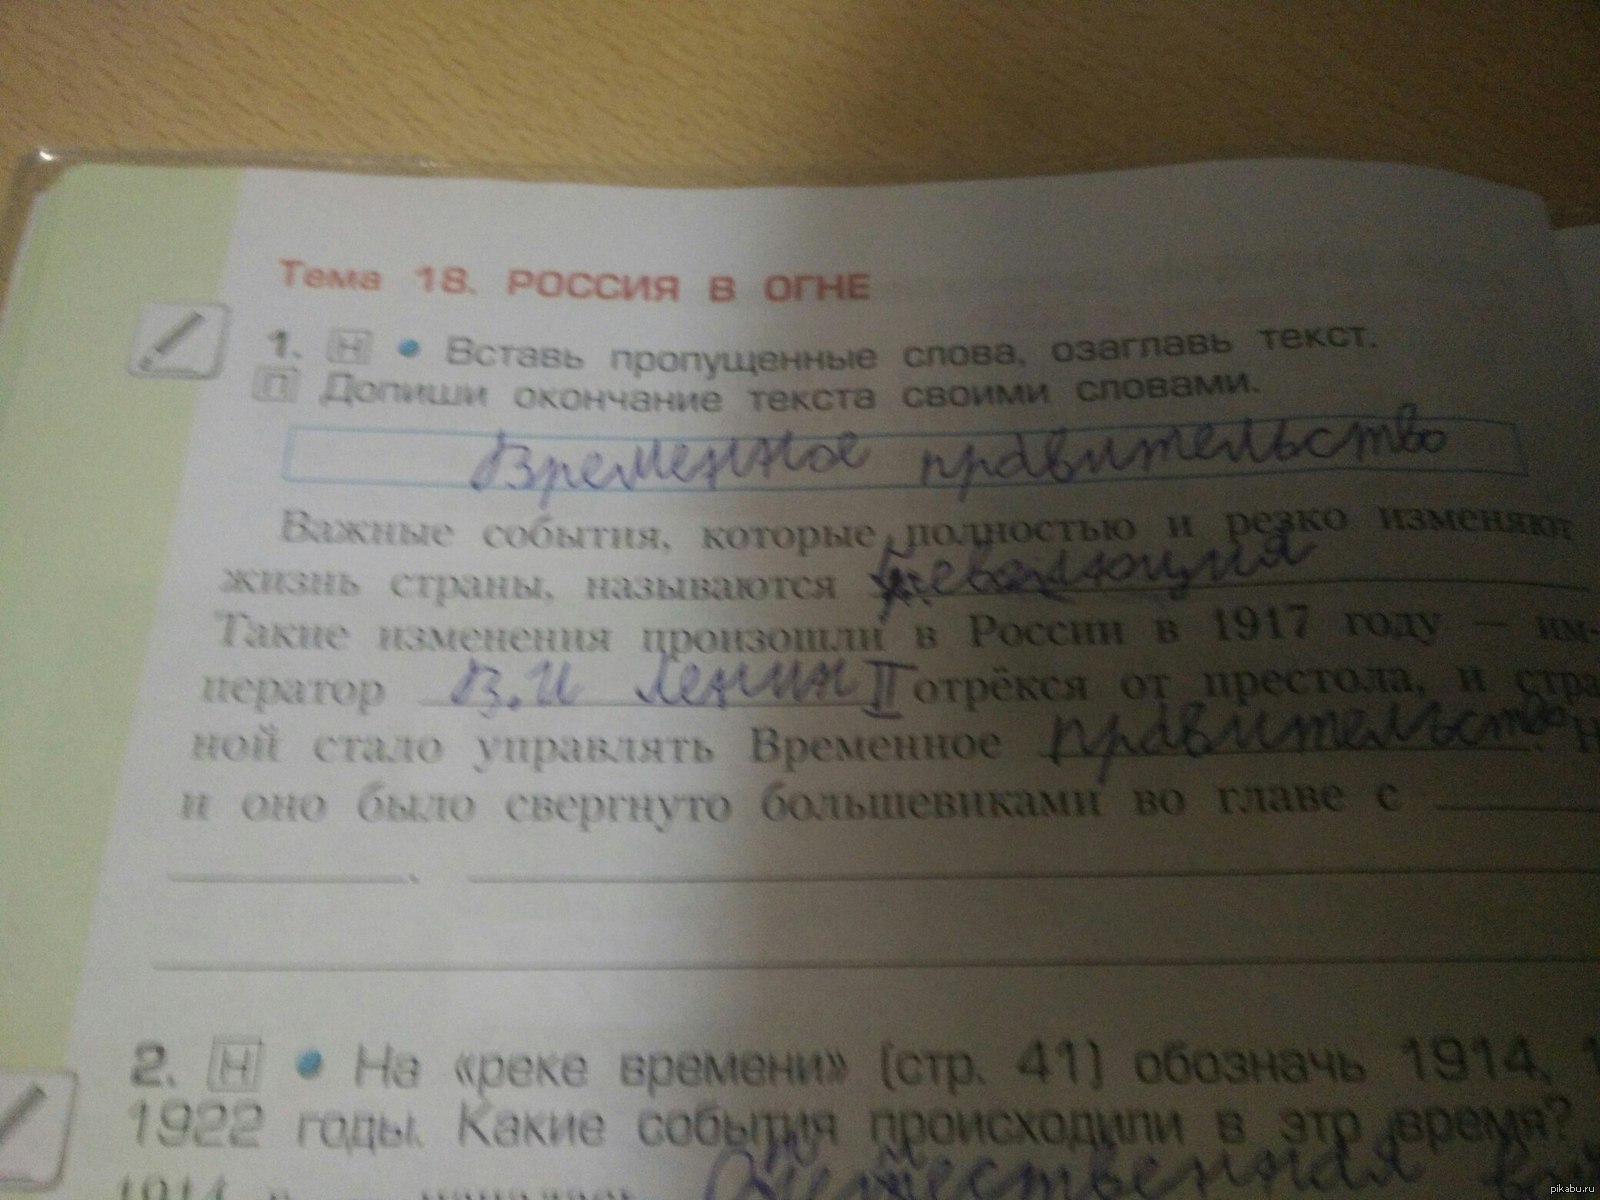 Тема 18. РОССИЯ В ОГНЕ
1. Н • Вставь пропущенные слова, озаглавь текст.
П Допиши окончание текста своими словами.
Временное правительство
Важные события, которые полностью и резко изменяют
жизнь страны, называются революция
Такие изменения произошли в России в 1917 году — им-
ператор В.И Ленин II отрёкся от престола, и стра
ной стало управлять Временное правительство. Н
и оно было свергнуто большевиками во главе с
2. Н • На «реке времени» (стр. 41) обозначь 1914, 1
1922 годы. Какие события происходили в это время?
1914 Отечественная
pikabu.ru